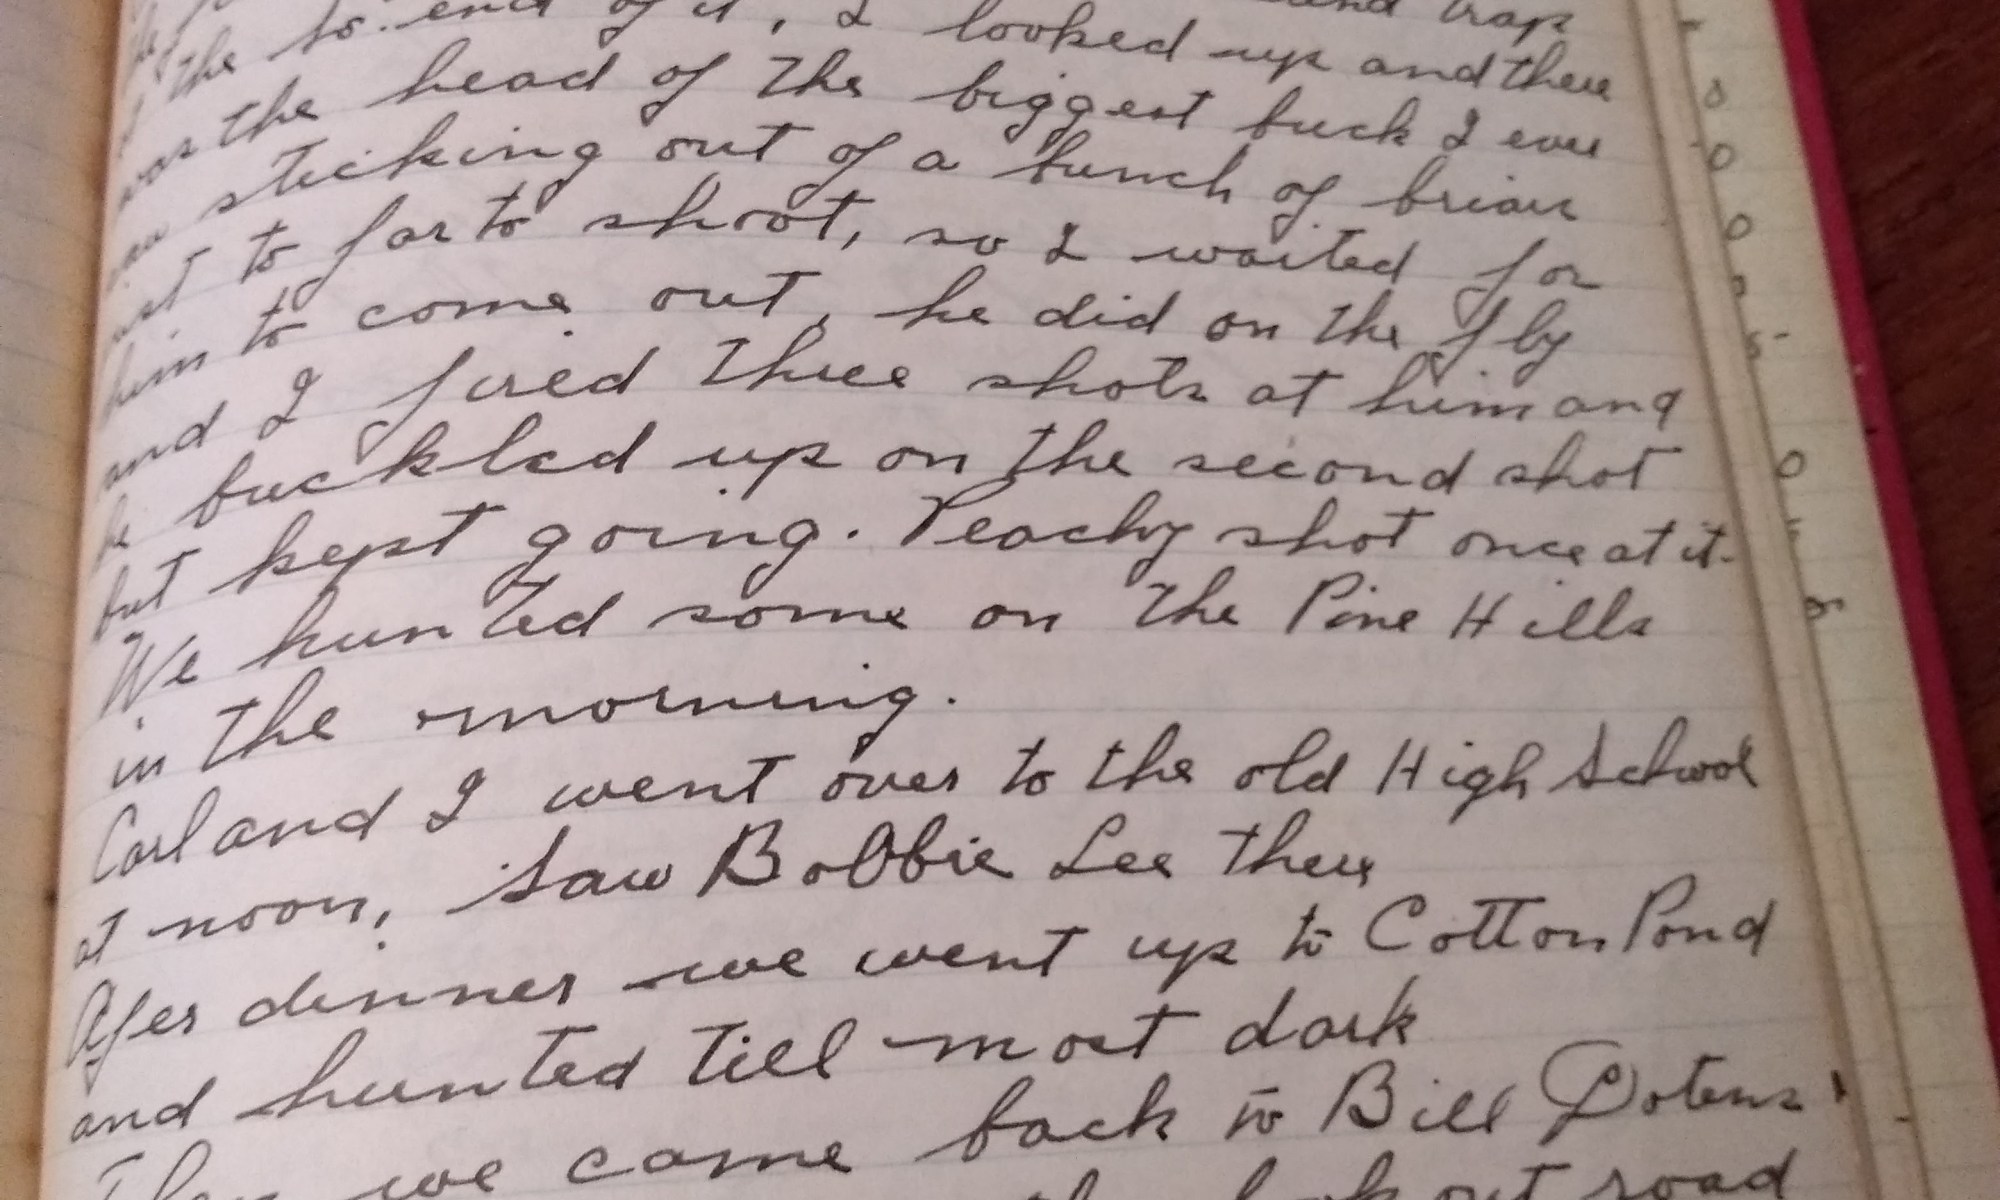 and trap
the so. end of it, I looked up and there
was the head of the biggest buck I ever
saw sticking out of a bunch of briars
just to far to shoot, so I waited for
him to come out, he did on the fly
and I fired three shots at him and
he buckled up on the second shot
but kept going. Peachy shot once at it.
We hunted some on the Pine Hills
in the morning.
Carl and I went over to the old High School
at noon, saw Bobbie Lee there
Afer dinner we went up to Cotton Pond
and hunted till most dark
Then we came back to Bill Dotens'
out road